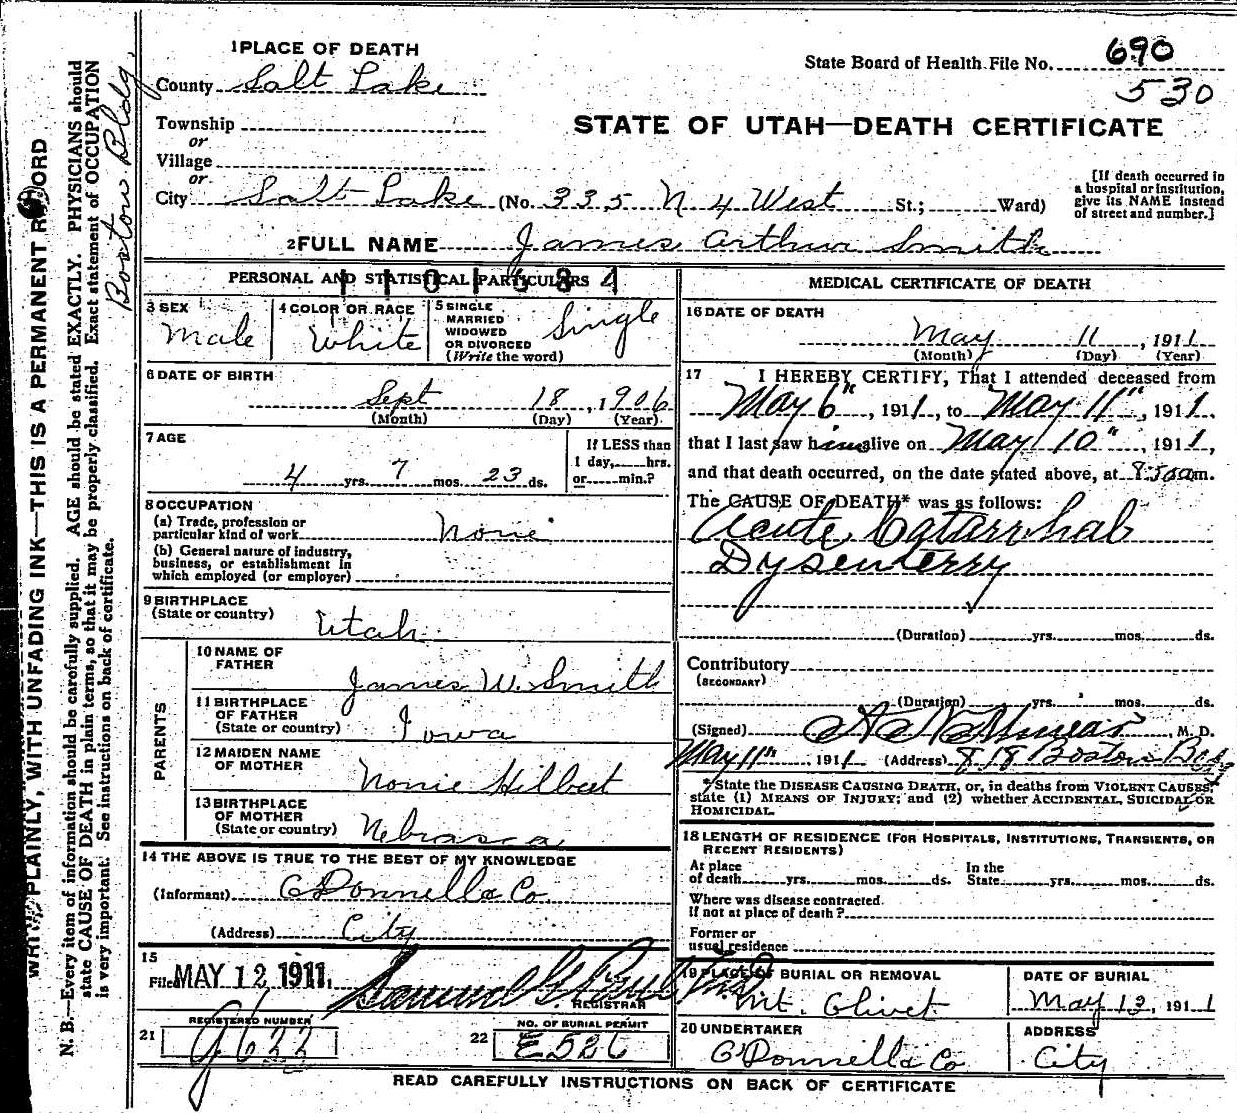 1 PLACE OF DEATH
County Salt Lake
Township
or
Village
or
City Salt Lake (No. 335 N 4 West St.; Ward)
State Board of Health File No. 690
530
STATE OF UTAH—DEATH CERTIFICATE
[If death occurred in
a hospital or institution,
give its NAME instead
of street and number.]
2 FULL NAME James Arthur Smith
PERSONAL AND STATISTICAL PARTICULARS
3 SEX
Male
4 COLOR OR RACE
White
5 SINGLE
MARRIED
WIDOWED
OR DIVORCED
(Write the word)
Single
6 DATE OF BIRTH
Sept 18, 1906
(Month) (Day) (Year)
7 AGE
4 yrs. 7 mos. 23 ds.
If LESS than
1 day, hrs.
or min.?
8 OCCUPATION
(a) Trade, profession or
particular kind of work None
(b) General nature of industry,
business, or establishment in
which employed (or employer)
9 BIRTHPLACE
(State or country) Utah
PARENTS
10 NAME OF
FATHER
James W. Smith
11 BIRTHPLACE
OF FATHER
(State or country) Iowa
12 MAIDEN NAME
OF MOTHER
Nonie Hilbert
13 BIRTHPLACE
OF MOTHER
(State or country) Nebrasca
14 THE ABOVE IS TRUE TO THE BEST OF MY KNOWLEDGE
(Informant) O'Donnell & Co
(Address) City
15
Filed MAY 12 1911, Samuel G. Paul M.D.
REGISTRAR
21 REGISTERED NUMBER
22 NO. OF BURIAL PERMIT
E 526
MEDICAL CERTIFICATE OF DEATH
16 DATE OF DEATH
May 11, 1911
(Month) (Day) (Year)
17 I HEREBY CERTIFY, That I attended deceased from
May 6", 1911, to May 11", 1911,
that I last saw him alive on May 10", 1911,
and that death occurred, on the date stated above, at 8:50 a m.
The CAUSE OF DEATH* was as follows:
Acute Catarrhal
Dysenterry
(Duration) yrs. mos. ds.
Contributory
(SECONDARY)
(Duration) yrs. mos. ds.
(Signed) M. D.
May 11th, 1911 (Address) 818 Boston Bldg
*State the DISEASE CAUSING DEATH, or, in deaths from VIOLENT CAUSES,
state (1) MEANS OF INJURY; and (2) whether ACCIDENTAL, SUICIDAL OR
HOMICIDAL.
18 LENGTH OF RESIDENCE (FOR HOSPITALS, INSTITUTIONS, TRANSIENTS, OR
RECENT RESIDENTS)
At place
of death yrs. mos. ds.
In the
State yrs. mos. ds.
Where was disease contracted.
If not at place of death?
Former or
usual residence
19 PLACE OF BURIAL OR REMOVAL
Mt. Olivet
DATE OF BURIAL
May 12, 1911
20 UNDERTAKER
O'Donnell & Co
ADDRESS
City
READ CAREFULLY INSTRUCTIONS ON BACK OF CERTIFICATE
WRITE PLAINLY, WITH UNFADING INK—THIS IS A PERMANENT RECORD
N. B.—Every item of information should be carefully supplied. AGE should be stated EXACTLY. PHYSICIANS should
state CAUSE OF DEATH in plain terms, so that it may be properly classified. Exact statement of OCCUPATION
is very important. See instructions on back of certificate.
Boston Bldg.